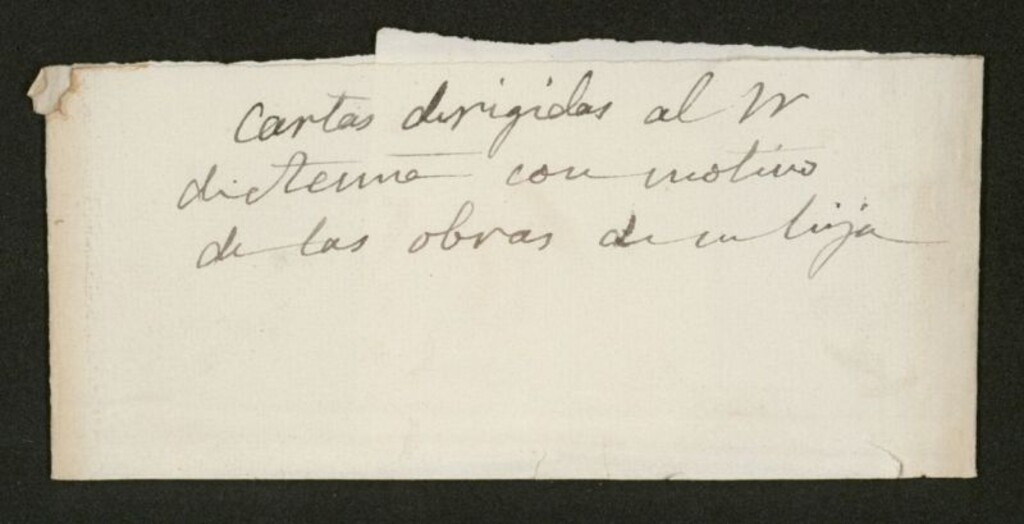 Cartas dirigidas al Sr
con motivo
de las obras de su hija